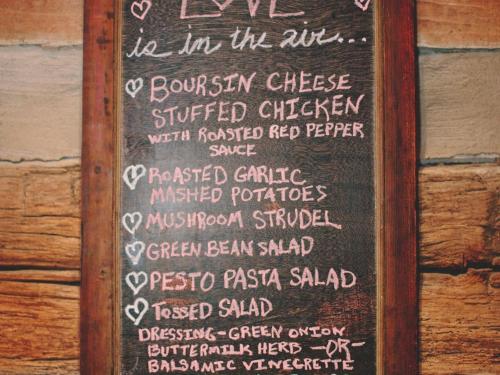 LOVE
is in the air...
BOURSIN CHEESE
STUFFED CHICKEN
WITH ROASTED RED PEPPER
SAUCE
ROASTED GARLIC
MASHED POTATOES
MUSHROOM STRUDEL
GREEN BEAN SALAD
PESTO PASTA SALAD
TOSSED SALAD
DRESSING-GREEN ONION
BUTTERMILK HERB -OR-
BALSAMIC VINEGRETTE